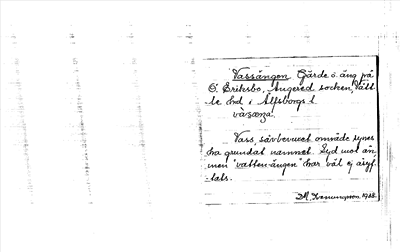 Vassängen Gärde o. äng på
Ö. Eriksbo, Angered socken, Vätt-
le hd i Älfsborgs l.
vàsæŋa.
Vass, särbevuxet område synes
ha grundat namnet. Syd mot än
men "vatten-ängen" har väl ej åsyf-
tats.
1928.